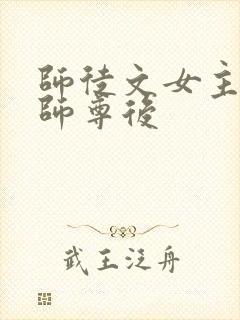 師徒文女主
師尊後
武王泛舟